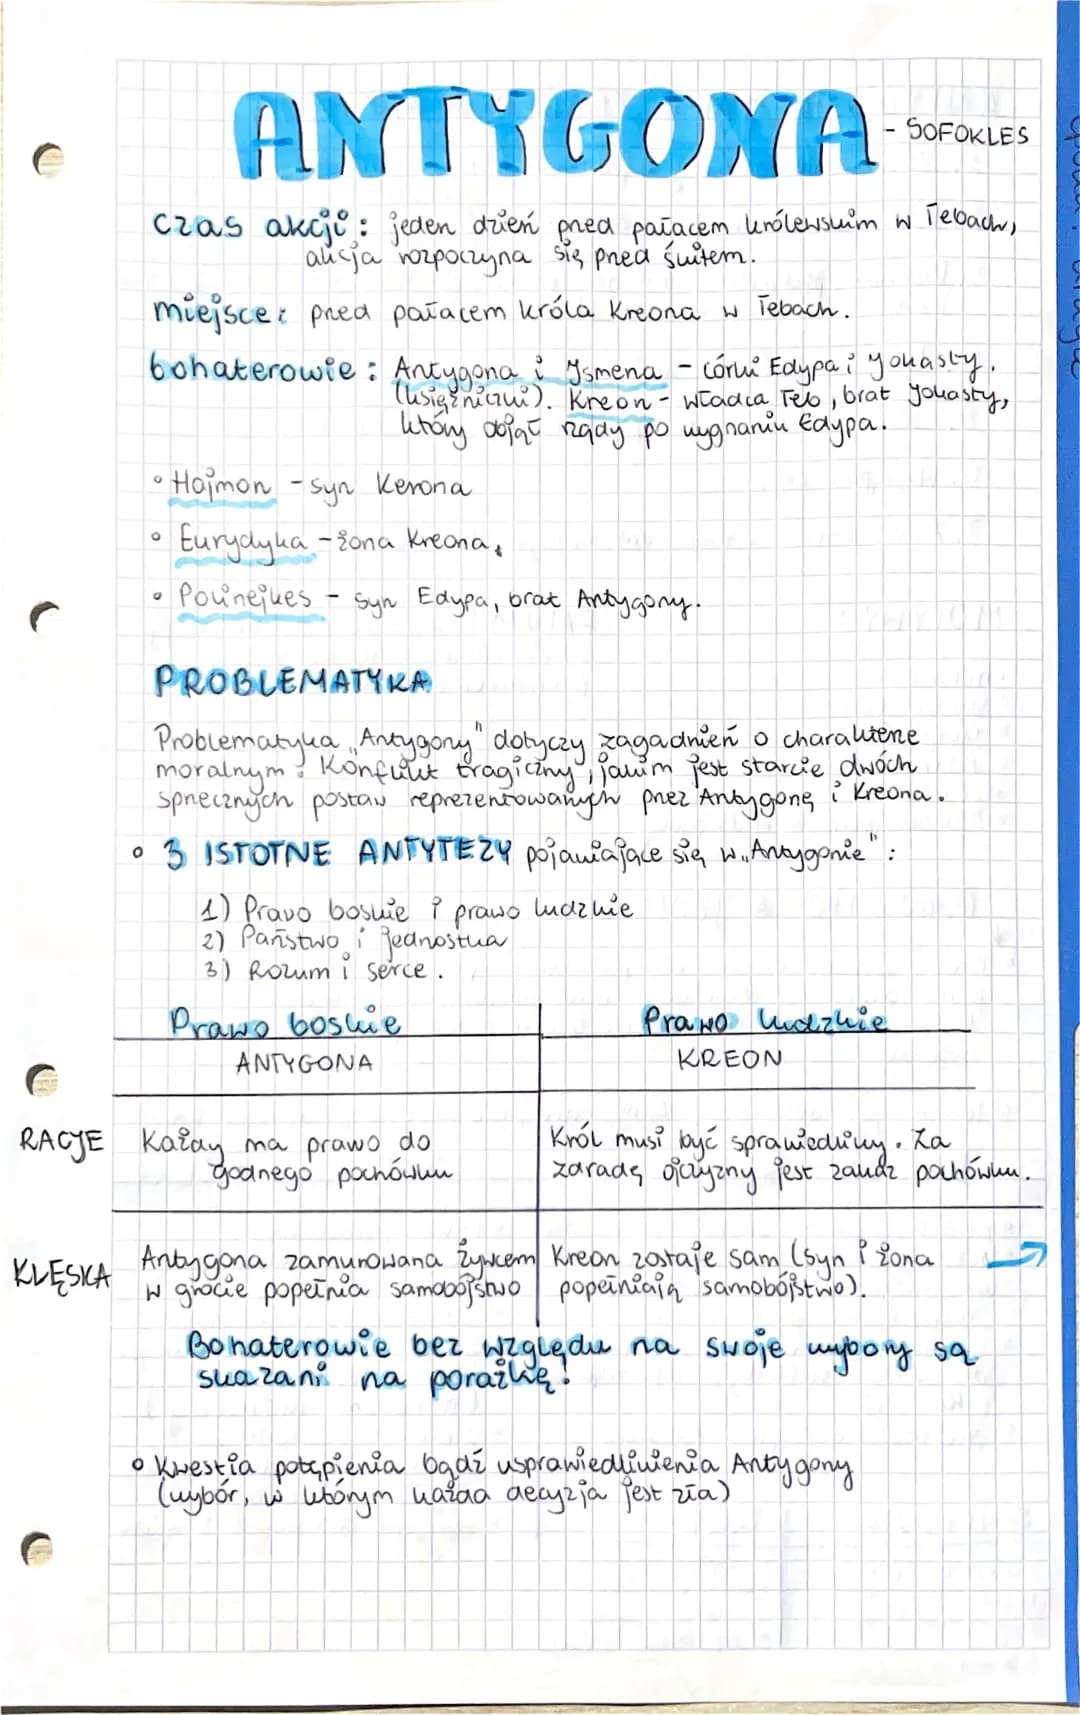 ANTYGONA - SOFOKLES
czas akcji : jeden dzień przed pałacem królewskim w Tebach,
akcja rozpoczyna się przed świtem.
miejsce: przed pałacem króla Kreona w Tebach.
bohaterowie : Antygona i Ismena - córki Edypa i Jokasty.
(księżniczki). Kreon - władca Teb, brat Jokasty,
który objął rządy po wygnaniu Edypa.
• Hajmon - syn Kerona
• Eurydyka - żona Kreona,
• Polinejkes - syn Edypa, brat Antygony.
PROBLEMATYKA
Problematyka „Antygony" dotyczy zagadnień o charakterze
moralnym. Konflikt tragiczny, jakim jest starcie dwóch
sprzecznych postaw reprezentowanych przez Antygonę i Kreona.
• 3 ISTOTNE ANTYTEZY pojawiające się w „Antygonie" :
1) Prawo boskie i prawo ludzkie
2) Państwo i jednostka
3) Rozum i serce.
Prawo boskie Prawo ludzkie
ANTYGONA KREON
RACJE Każdy ma prawo do Król musi być sprawiedliwy. Za
godnego pochówku zdradę ojczyzny jest zakaz pochówku.
KLĘSKA Antygona zamurowana żywcem Kreon zostaje sam (syn i żona
w grocie popełnia samobójstwo popełniają samobójstwo).
Bohaterowie bez względu na swoje wybory są
skazani na porażkę!
• Kwestia potępienia bądź usprawiedliwienia Antygony
(wybór, w którym każda decyzja jest zła)